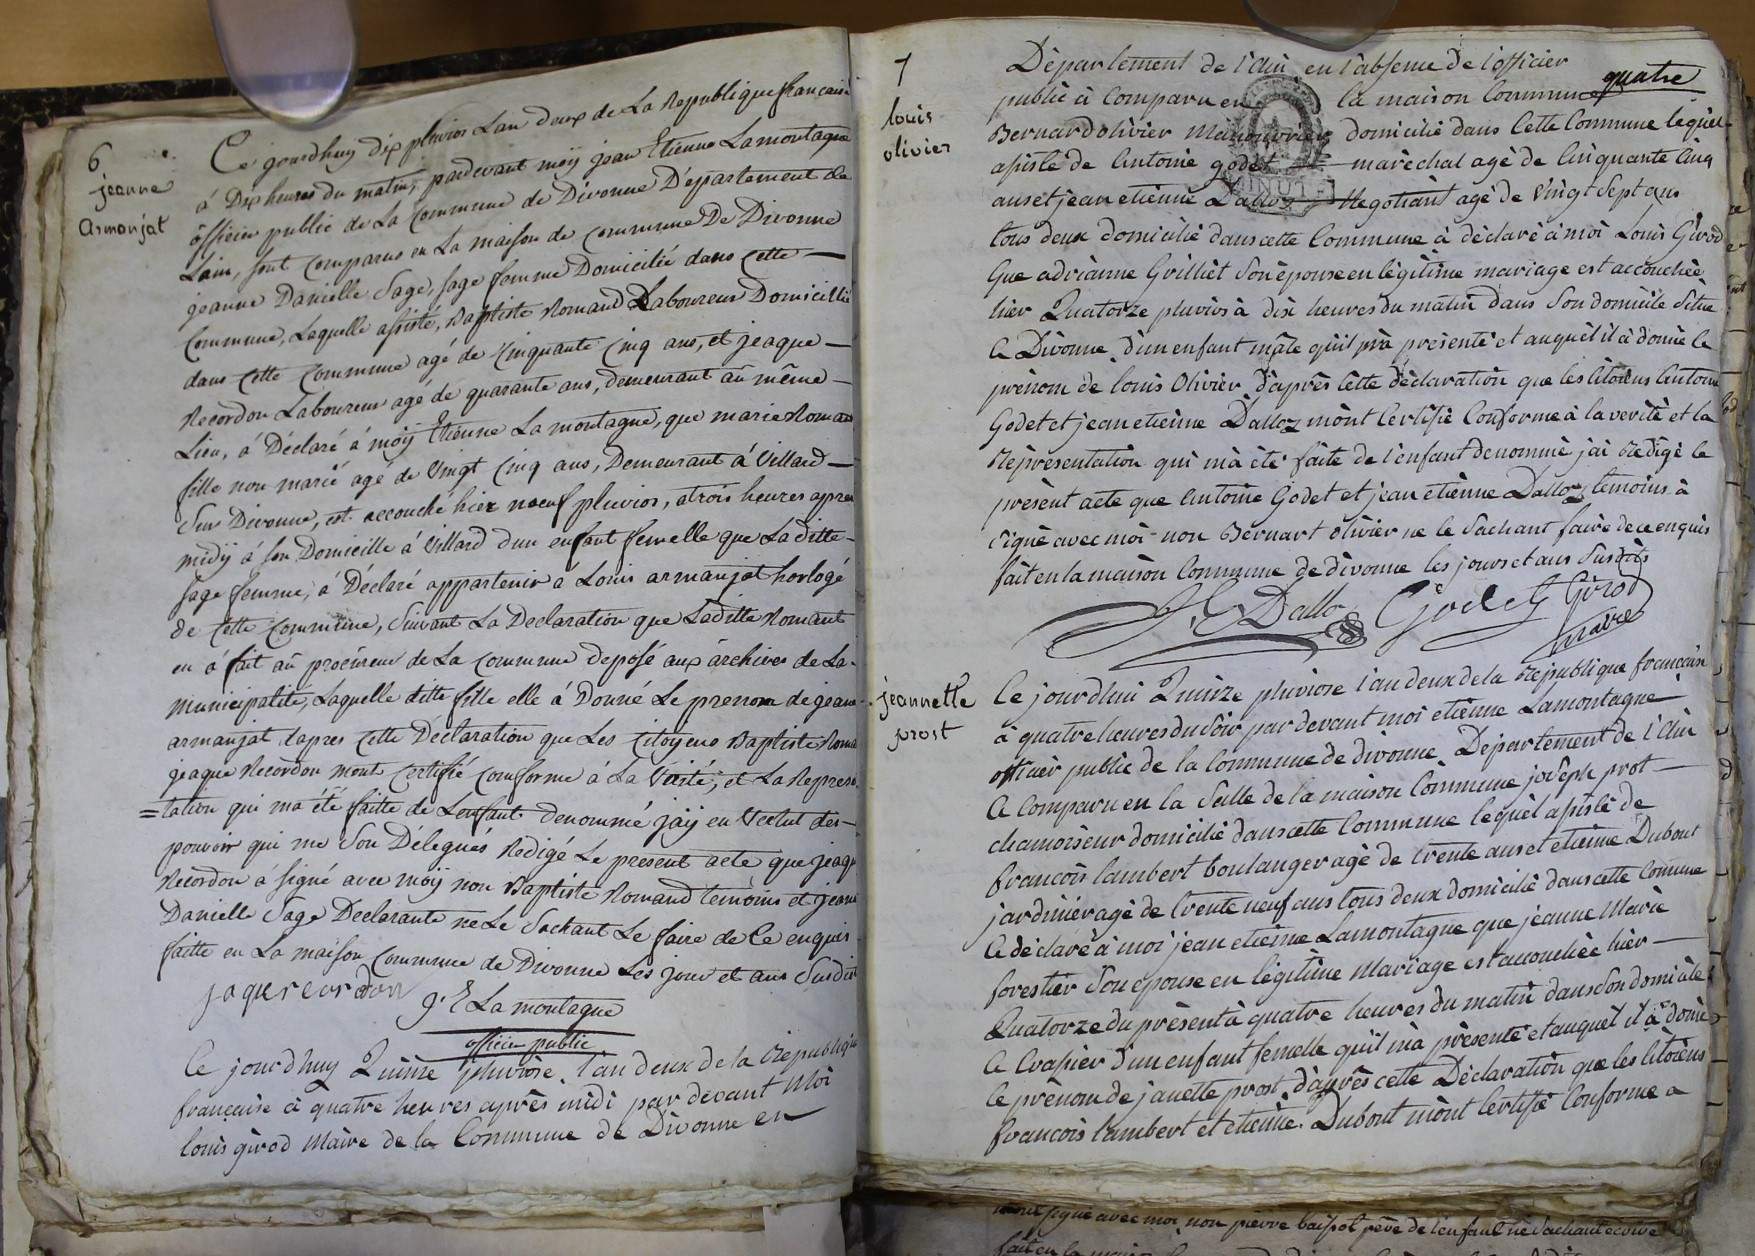 6
jeanne
armanjat
Ce jourdhuy dix pluvios Lan deux de La Republique francaise
á Dix heures du matin, pardevant moÿ jean Etienne Lamontagne
öfficier public de La Commune de Divonne Département de
Lain, sont comparus en La maison de Commune De Divonne
jeanne Danielle Sage, sage femme Domicilié dans cette —
Commune, Lequelle assiste, Baptiste Romand Laboureur Domicillié
dans cette Commune agé de Cinquante Cinq ans, et jeaque —
Recordon Laboureur agé de quarante ans, demeurant aû même —
Lieu, á Déclaré á moÿ Etienne La montagne, que marie Roman
fille non marié agé de Vingt Cinq ans, Demeurant á Villard —
Sur Divonne, est accouché hier noeuf pluvios, atrois heures apres
midÿ á son Domicille á Villard dun enfant femelle que Laditte —
sage femme, á Déclaré appartenir á Louis armanjat horlogé
de Cette Commune, Suivant La Declaration que Laditte Romant
en á fait aû procureur de La Commune deposé aux archives de La
municipalité, Laquelle ditte fille elle á Donné Le prenom de jeane
armanjat dapres cette Déclaration que Les Citoyens Baptiste Roma
jeaque Recordon mont Certifié Comforme á La Vérité, et La Represen
=tation qui ma été faitte de Lenfant denommé jaÿ en Vertut des —
pouvoir qui me Son Délegués Redigé Le present acte que jeaqu
Recordon á signé avec moÿ non Baptiste Romand temoins et jeane
Danielle Sage Declarante ne Le Sachant Le faire de Ce enquis
faitte en La maison Commune de Divonne Les jour et ans Susdit
jaque recordon
J. E La montagne
officier public
Ce jourdhuy Quinze pluviose l'an deux de la Republique
française à quatre heures après midi par devant Moi
louis girod Maire de la Commune de Divonne en
7
louis
olivier
quatre
Département de l'Ain en l'absense de l'officier
public à Comparu en la maison Commune
Bernard olivier Manouvrier domicilié dans Cette Commune lequel
assisté de Antoine godet maréchal agé de Cinquante Cinq
ans et jean etienne Dalloz Negotiant agé de Vingt Sept ans
tous deux domicilié dans cette Commune à déclaré à moi Louis Girod
Que adrianne Grilliet Son épouse en légitime mariage est accouchée
hier Quatorze pluvios à dix heures du matin dans Son domicile Situé
a Divonne d'un enfant mâle qu'il m'a présenté et auquel il à donné le
prénom de louis Olivier d'après cette déclaration que les Citoiens Antoine
Godet et jean etienne Dalloz m'ont Certifié Conforme à la verité et la
Représentation qui m'à été faite de l'enfant denommé j'ai Redigé le
présent acte que Antoine Godet et jean etienne Dalloz temoins à
signé avec moi non Bernart olivier ne le Sachant faire de ce enquis
fait en la maison Commune de divonne les jours et ans Susdits
J. E Dalloz Godet Girod
maire
jeannette
prost
Ce jourdhui Quinze pluviose l'an deux de la République francaise
à quatre heures du Soir par devant moi etienne Lamontagne
officier public de la Commune de divonne Département de l'Ain
a Comparu en la Salle de la maison Commune joseph prost —
chamoiseur domicilié dans cette Commune lequel assisté de
francois lambert boulanger agé de trente ans et etienne Dubout
jardinier agé de trente neuf ans tous deux domicilié dans cette Commune
a déclaré à moi jean etienne Lamontagne que jeanne Marie
forestier Son épouse en légitime Mariage est accouchée hier —
Quatorze du présent à quatre heures du matin dans Son domicile
a Crassier d'un enfant femelle qu'il m'à présenté et auquel il à donné
le prénom de janette prost d'après cette Déclaration que les Citoiens
francois lambert et etienne Dubout m'ont Certifié Conforme a
signé avec moi non pierre de l'enfant ne Sachant écrire
fait en la maison